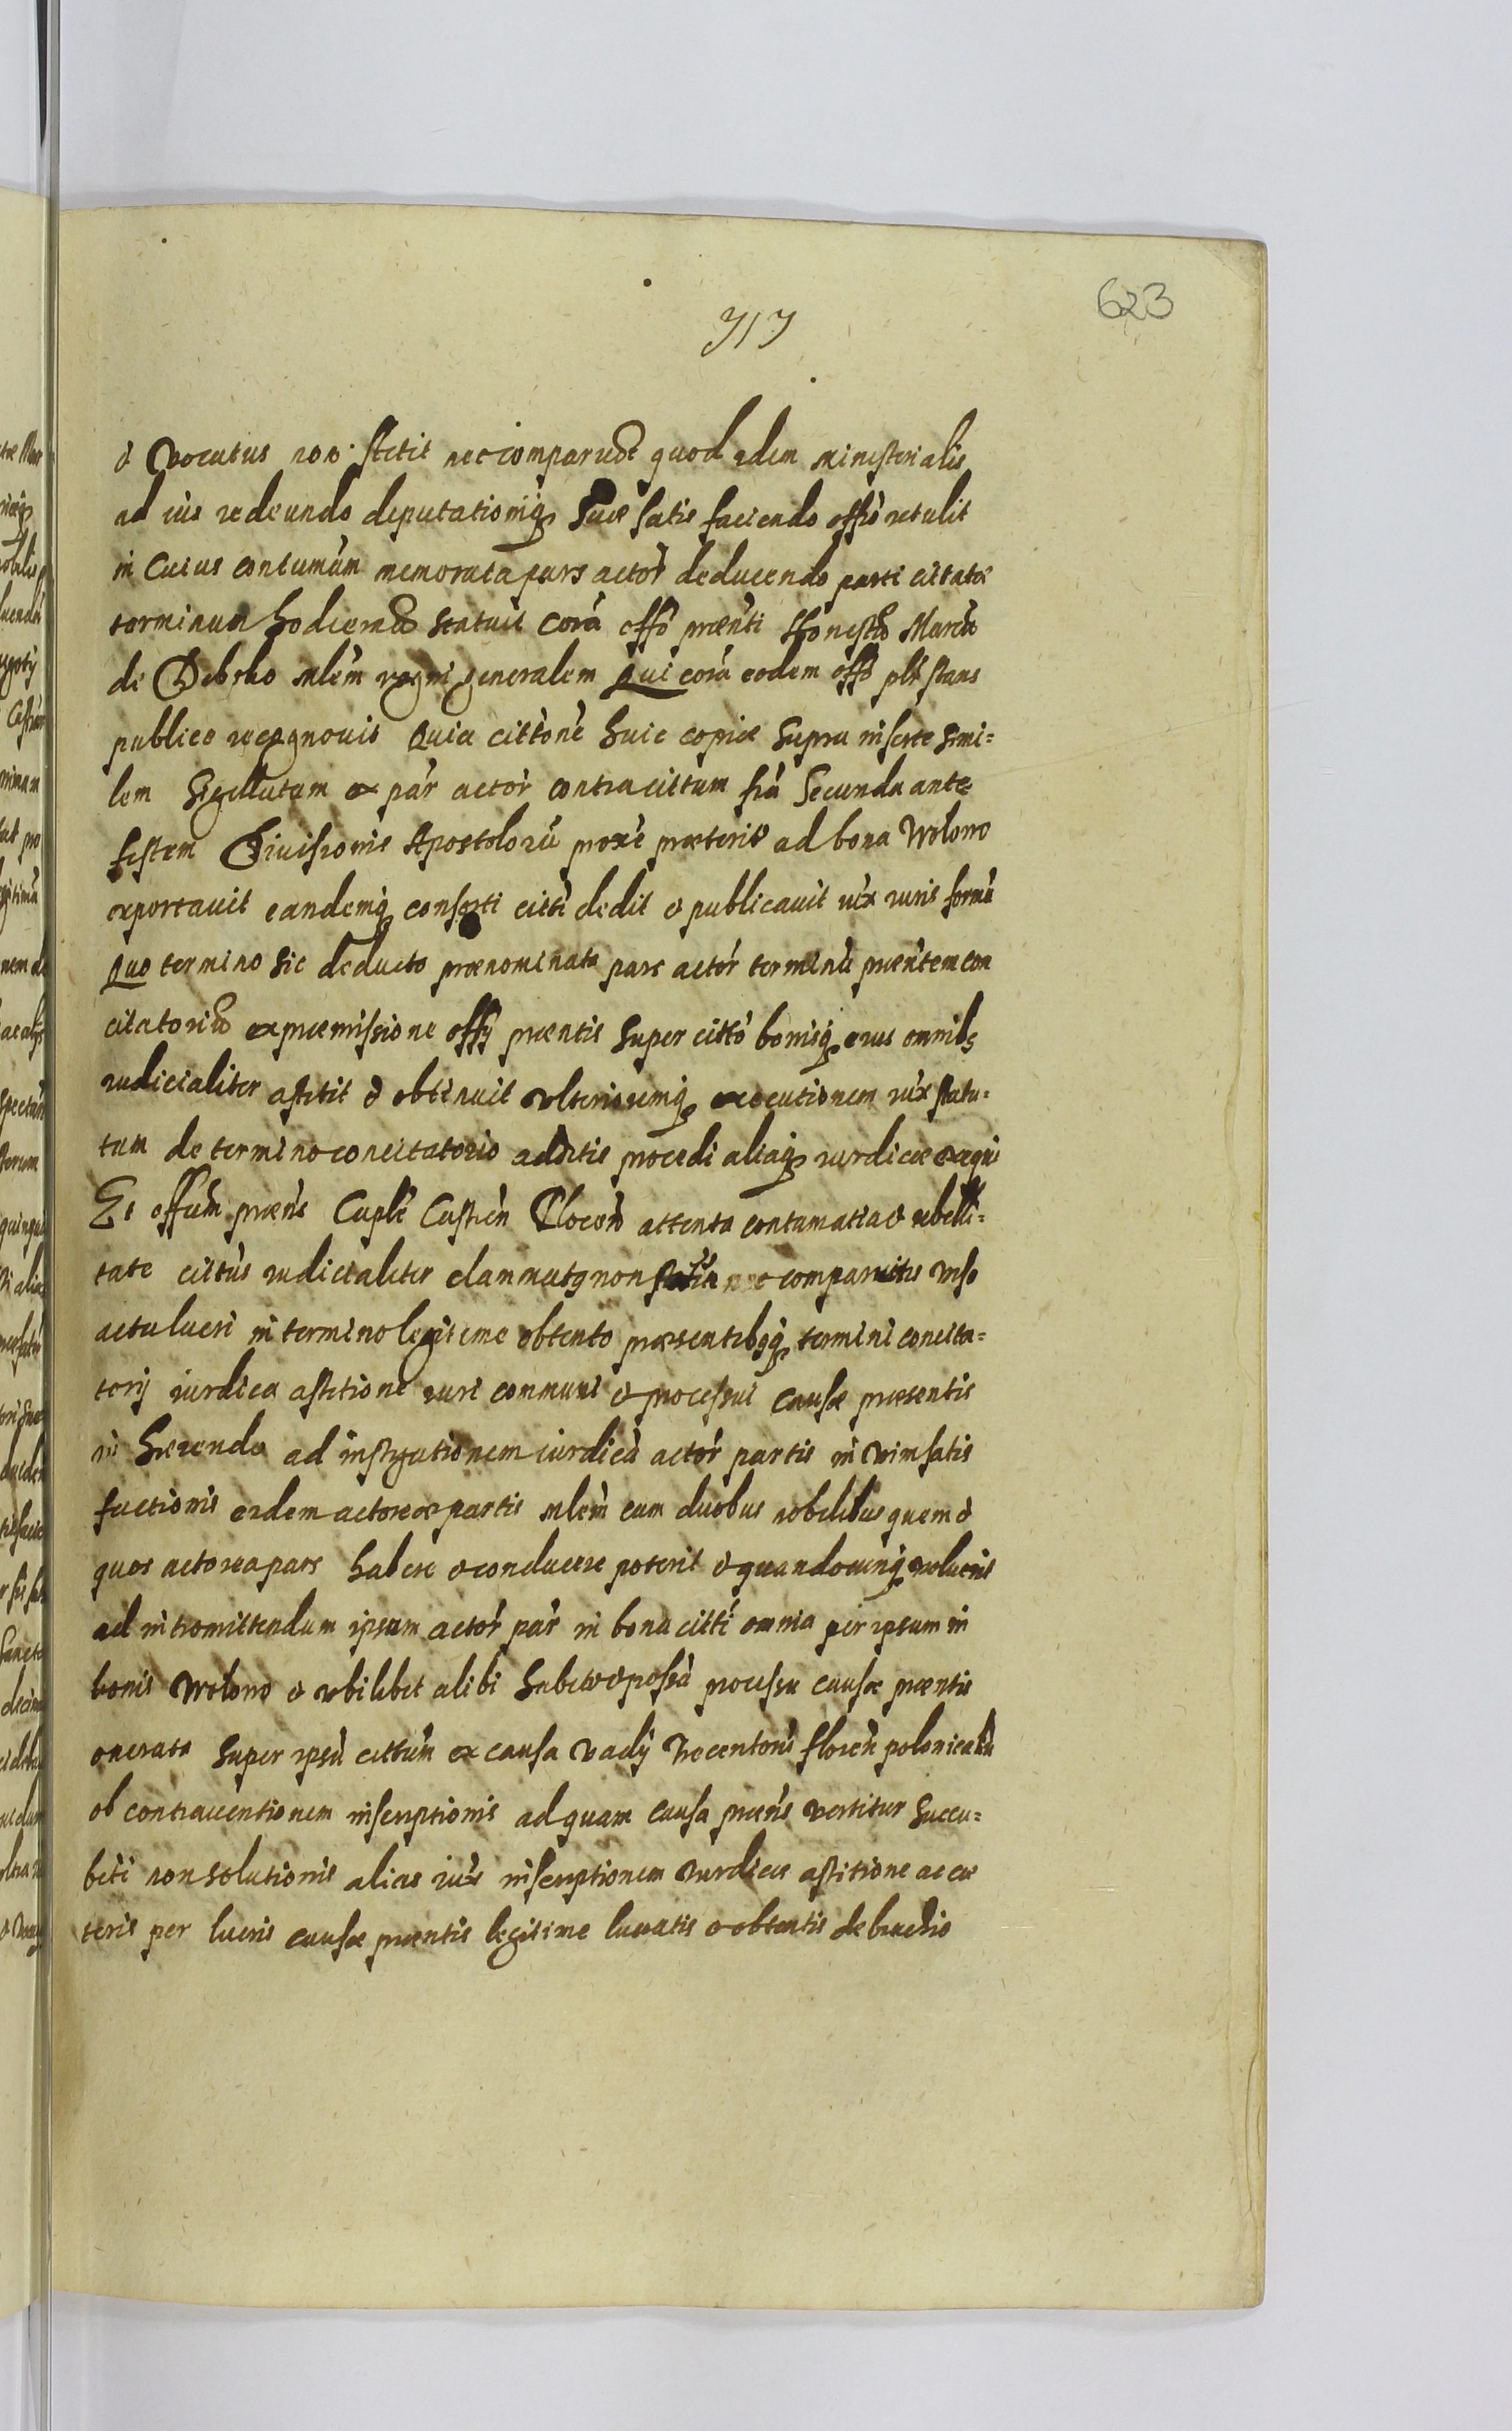 623
717
& vocatus non stetit nec comparuit quod idem ministerialis
ad ius redeundo deputationiq suæ satis faciendo offo retulit
in cuius contumam memorata pars actor deducendo parti citatæ
terminum hodiernum statuit corā offo prænti Honestum Marcū
de Debsko mlem regni generalem Qui corā eodem offo plr stans
publice recognovit Quia cittone huic copiæ supra inserte simi=
lem Sigillatam ex par actor contra cittum fiā Secunda ante
festum Diuisionis Apostolorū proxe præterit ad bona Wolowo
exportavit eandemq consorti citti dedit & publicavit iux iuris formā
Quo termino sic deducto prænominata pars actor terminū præntem con
citatorium ex præmissione offij præntis super citto bonisq eius omnibs
iudicialiter astitit & obtinuit ulterioremq executionem iux statu=
tum de termino concitatorio additis procedi aliaq iurdice exequi
Et offum præns Caple Castren Plocen attenta contumatia & rebelli=
tate cittus iudicialiter clammatq non nec comparuitis viso
actu lucri in termino legitime obtento præsentibsq termini concita=
torij iurdica astitione iuri communi & processui causæ præsentis
in hærendo ad instigationem iurdicā actor partis in vim satis
factionis eidem actoreæ partis mlem cum duobus nobilibus quem &
quos actorea pars habere & conducere poterit & quandocunq voluerit
ad intromittendum ipsam actor par in bona citti omnia per ipsum in
bonis Wolowo & ubilibet alibi habita & possa processu causæ præntis
onerata super ipsū cittum ex causa vadij trecentorū floren polonicaliū
ob contraventionem inscriptionis ad quam causa præns vertitur succu=
biti non solutionis alias iux inscriptionem iurdice astitione ac cæ
teris per lucris causæ præntis legitime lucratis & obtentis debendio